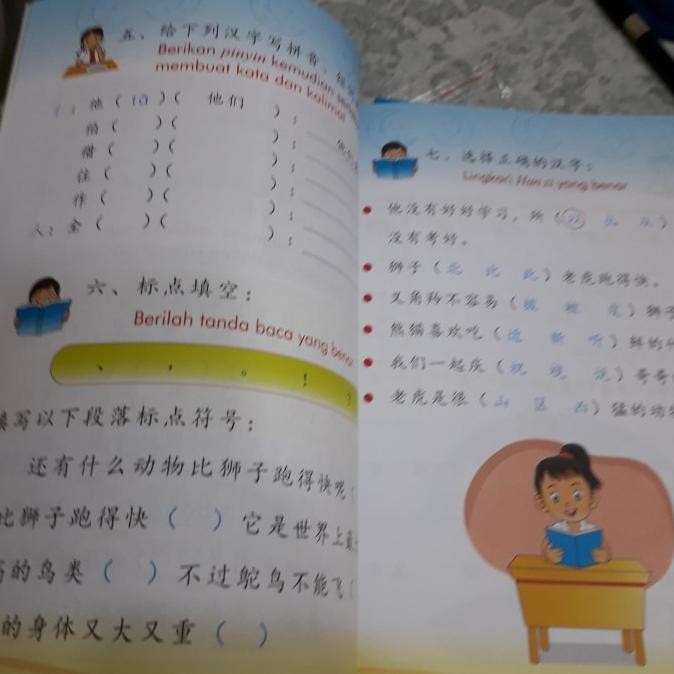 五、给下列汉字写拼音，
Berikan pinyin kemudian
membuat kata dan kalimat
亻：他（ tā ）（ 他们 ）；
（ ）（ ）；
借（ ）（ ）；
住（ ）（ ）；
作（ ）（ ）；
人：全（ ）（ ）；
六、标点填空：
Berilah tanda baca yang benar
、 ， 。 ！
填写以下段落标点符号：
还有什么动物比狮子跑得快呢（
比狮子跑得快（ ）它是世界上
的鸟类（ ）不过鸵鸟不能飞（
的身体又大又重（ ）
七、选择正确的汉字：
Lingkari Hanzi yang benar
他没有好好学习，所（以 ）
没有考好。
狮子（北 比 此）老虎跑得快。
叉角羚不容易（ 被 ）狮子
熊猫喜欢吃（近 新 听）鲜的
我们一起庆（祝 说）哥哥
老虎是很（山 区 凶）猛的动物